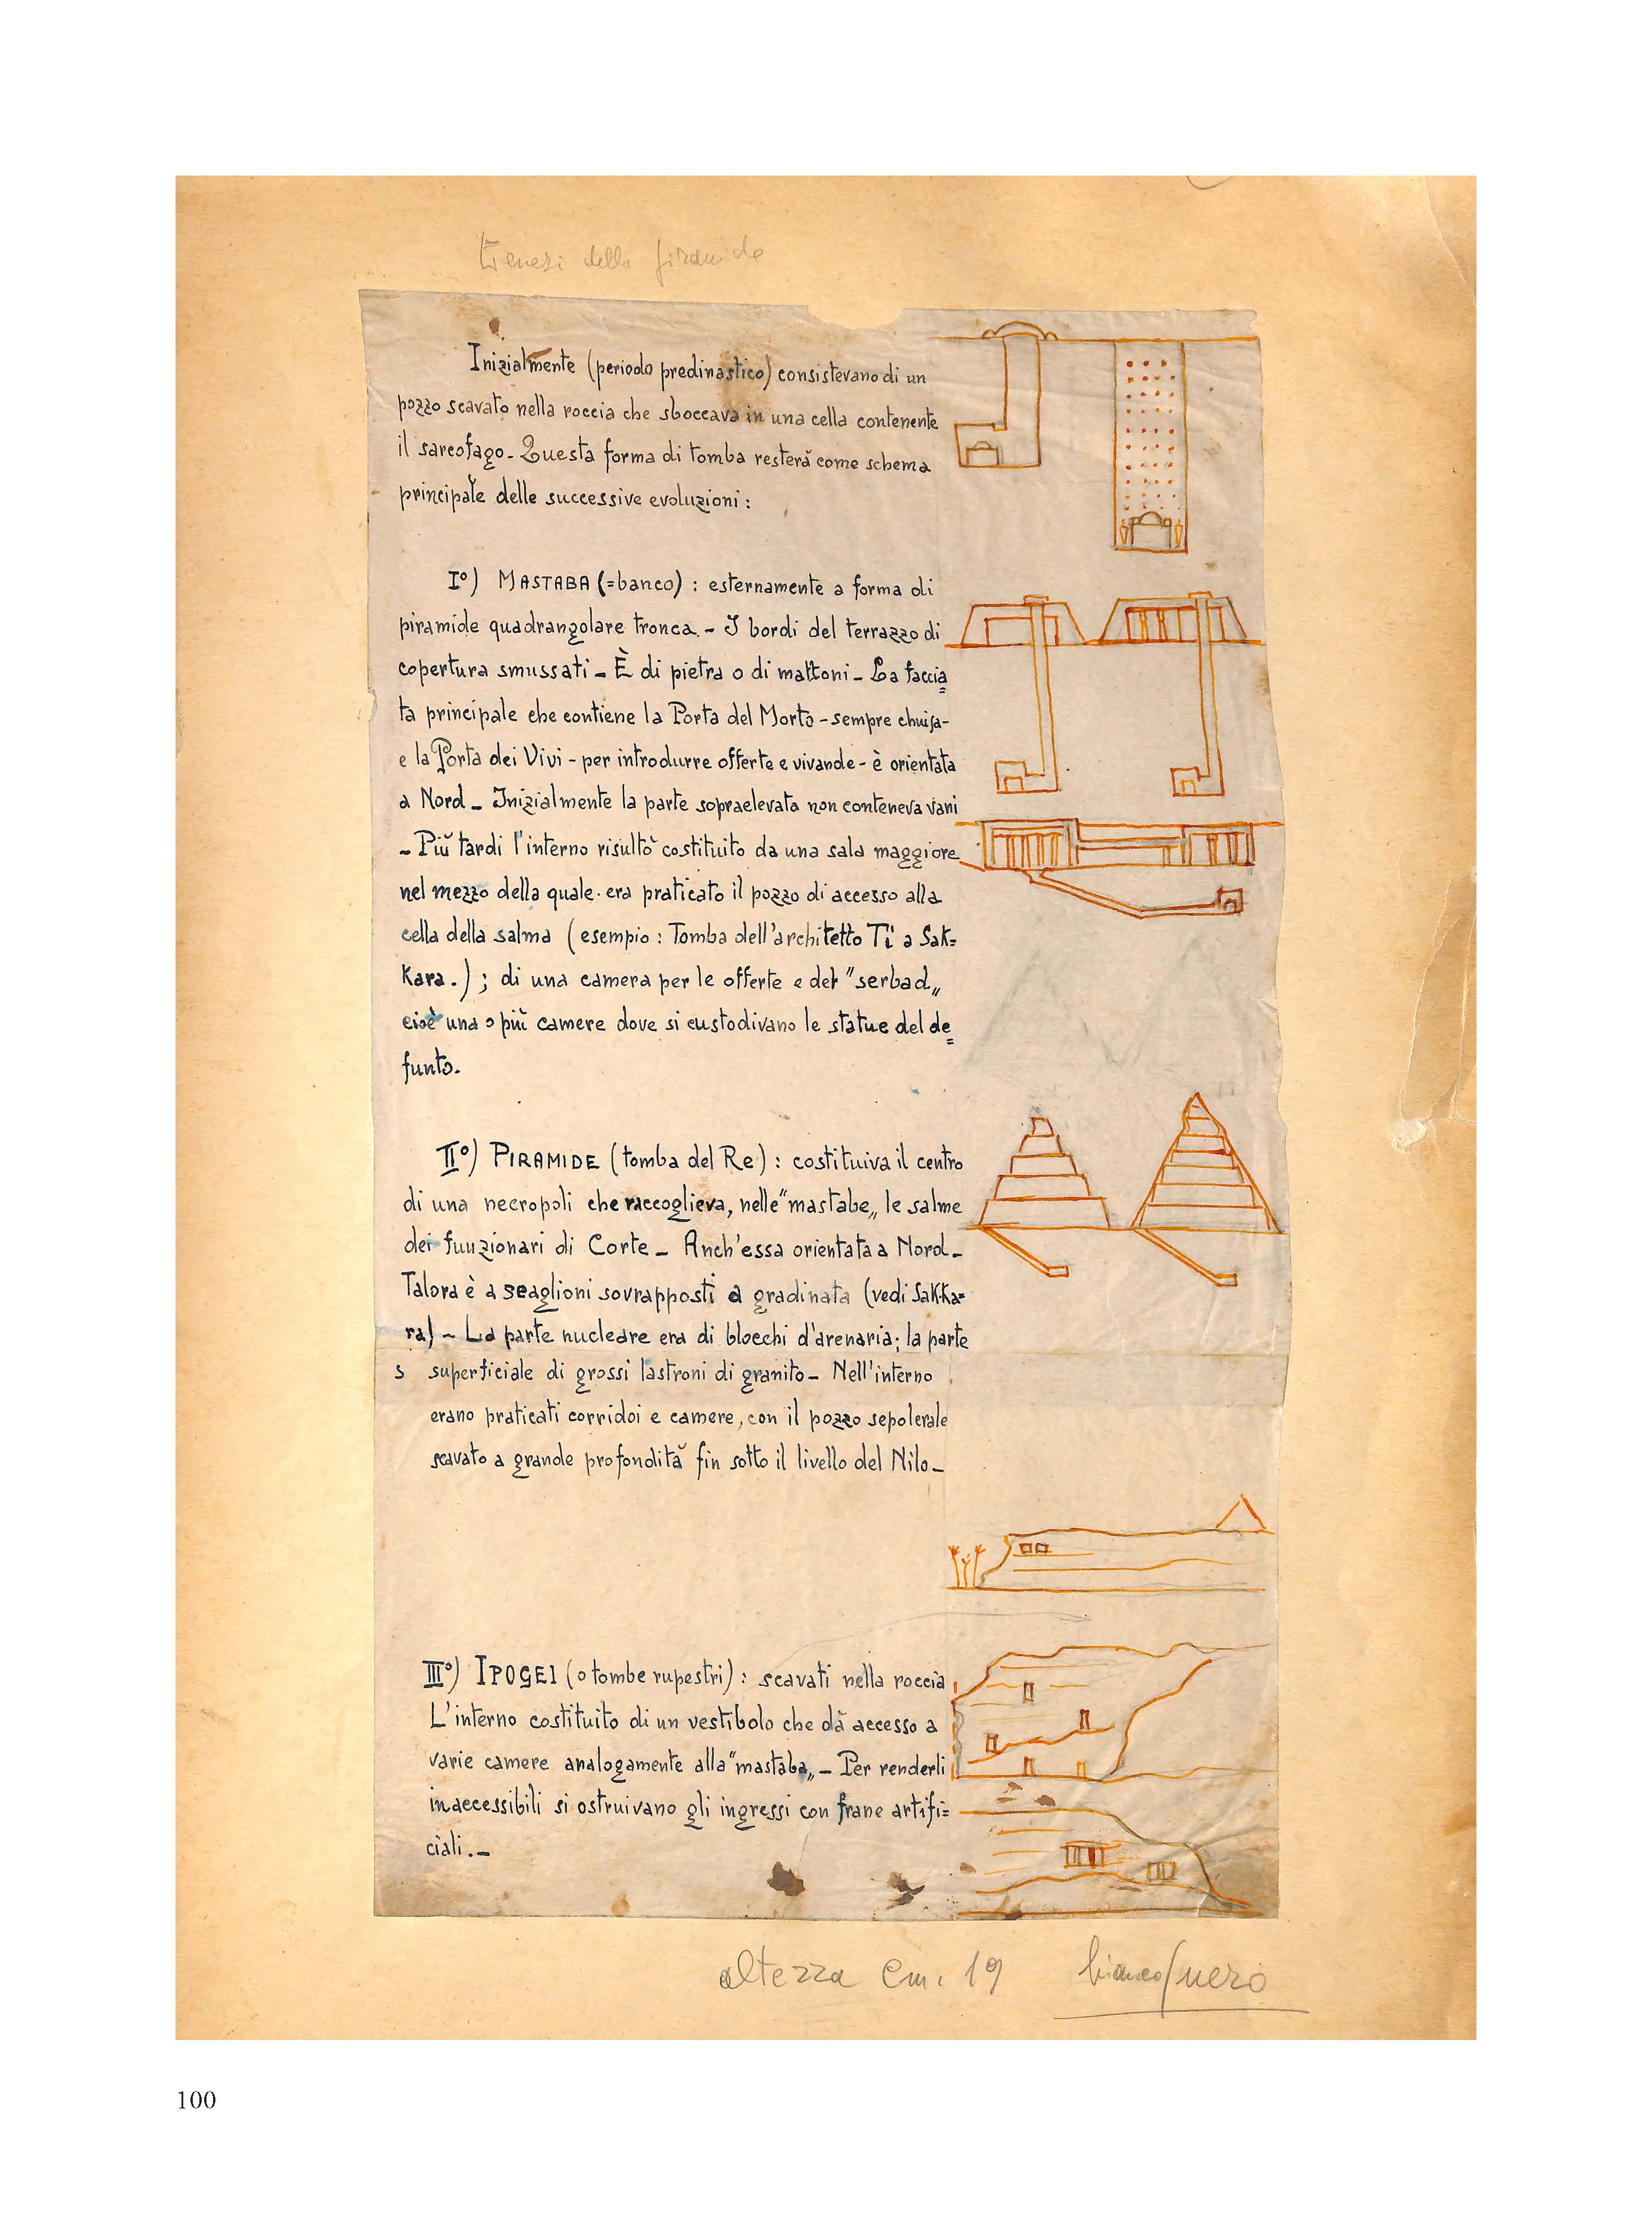 Genesi della piramide
Inizialmente (periodo predinastico) consistevano di un
pozzo scavato nella roccia che sboccava in una cella contenente
il sarcofago - Questa forma di tomba resterà come schema
principale delle successive evoluzioni :
I°) MASTABA (=banco) : esternamente a forma di
piramide quadrangolare tronca - I bordi del terrazzo di
copertura smussati - È di pietra o di mattoni - La faccia=
ta principale che contiene la Porta del Morto - sempre chuisa -
e la Porta dei Vivi - per introdurre offerte e vivande - è orientata
a Nord - Inizialmente la parte sopraelevata non conteneva vani
- Più tardi l'interno risultò costituito da una sala maggiore
nel mezzo della quale era praticato il pozzo di accesso alla
cella della salma (esempio : Tomba dell'architetto Ti a Sak=
kara.) ; di una camera per le offerte e del "serbad"
cioè una o più camere dove si custodivano le statue del de=
funto.
II°) PIRAMIDE (tomba del Re) : costituiva il centro
di una necropoli che raccoglieva, nelle "mastabe" le salme
dei funzionari di Corte - Anch'essa orientata a Nord -
Talora è a scaglioni sovrapposti a gradinata (vedi Sakka=
ra) - La parte nucleare era di blocchi d'arenaria; la parte
s superficiale di grossi lastroni di granito - Nell'interno
erano praticati corridoi e camere, con il pozzo sepolcrale
scavato a grande profondità fin sotto il livello del Nilo -
III°) IPOGEI (o tombe rupestri) : scavati nella roccia
L'interno costituito di un vestibolo che dà accesso a
varie camere analogamente alla "mastaba" - Per renderli
inaccessibili si ostruivano gli ingressi con frane artifi=
ciali. -
altezza cm. 19 bianco/nero
100